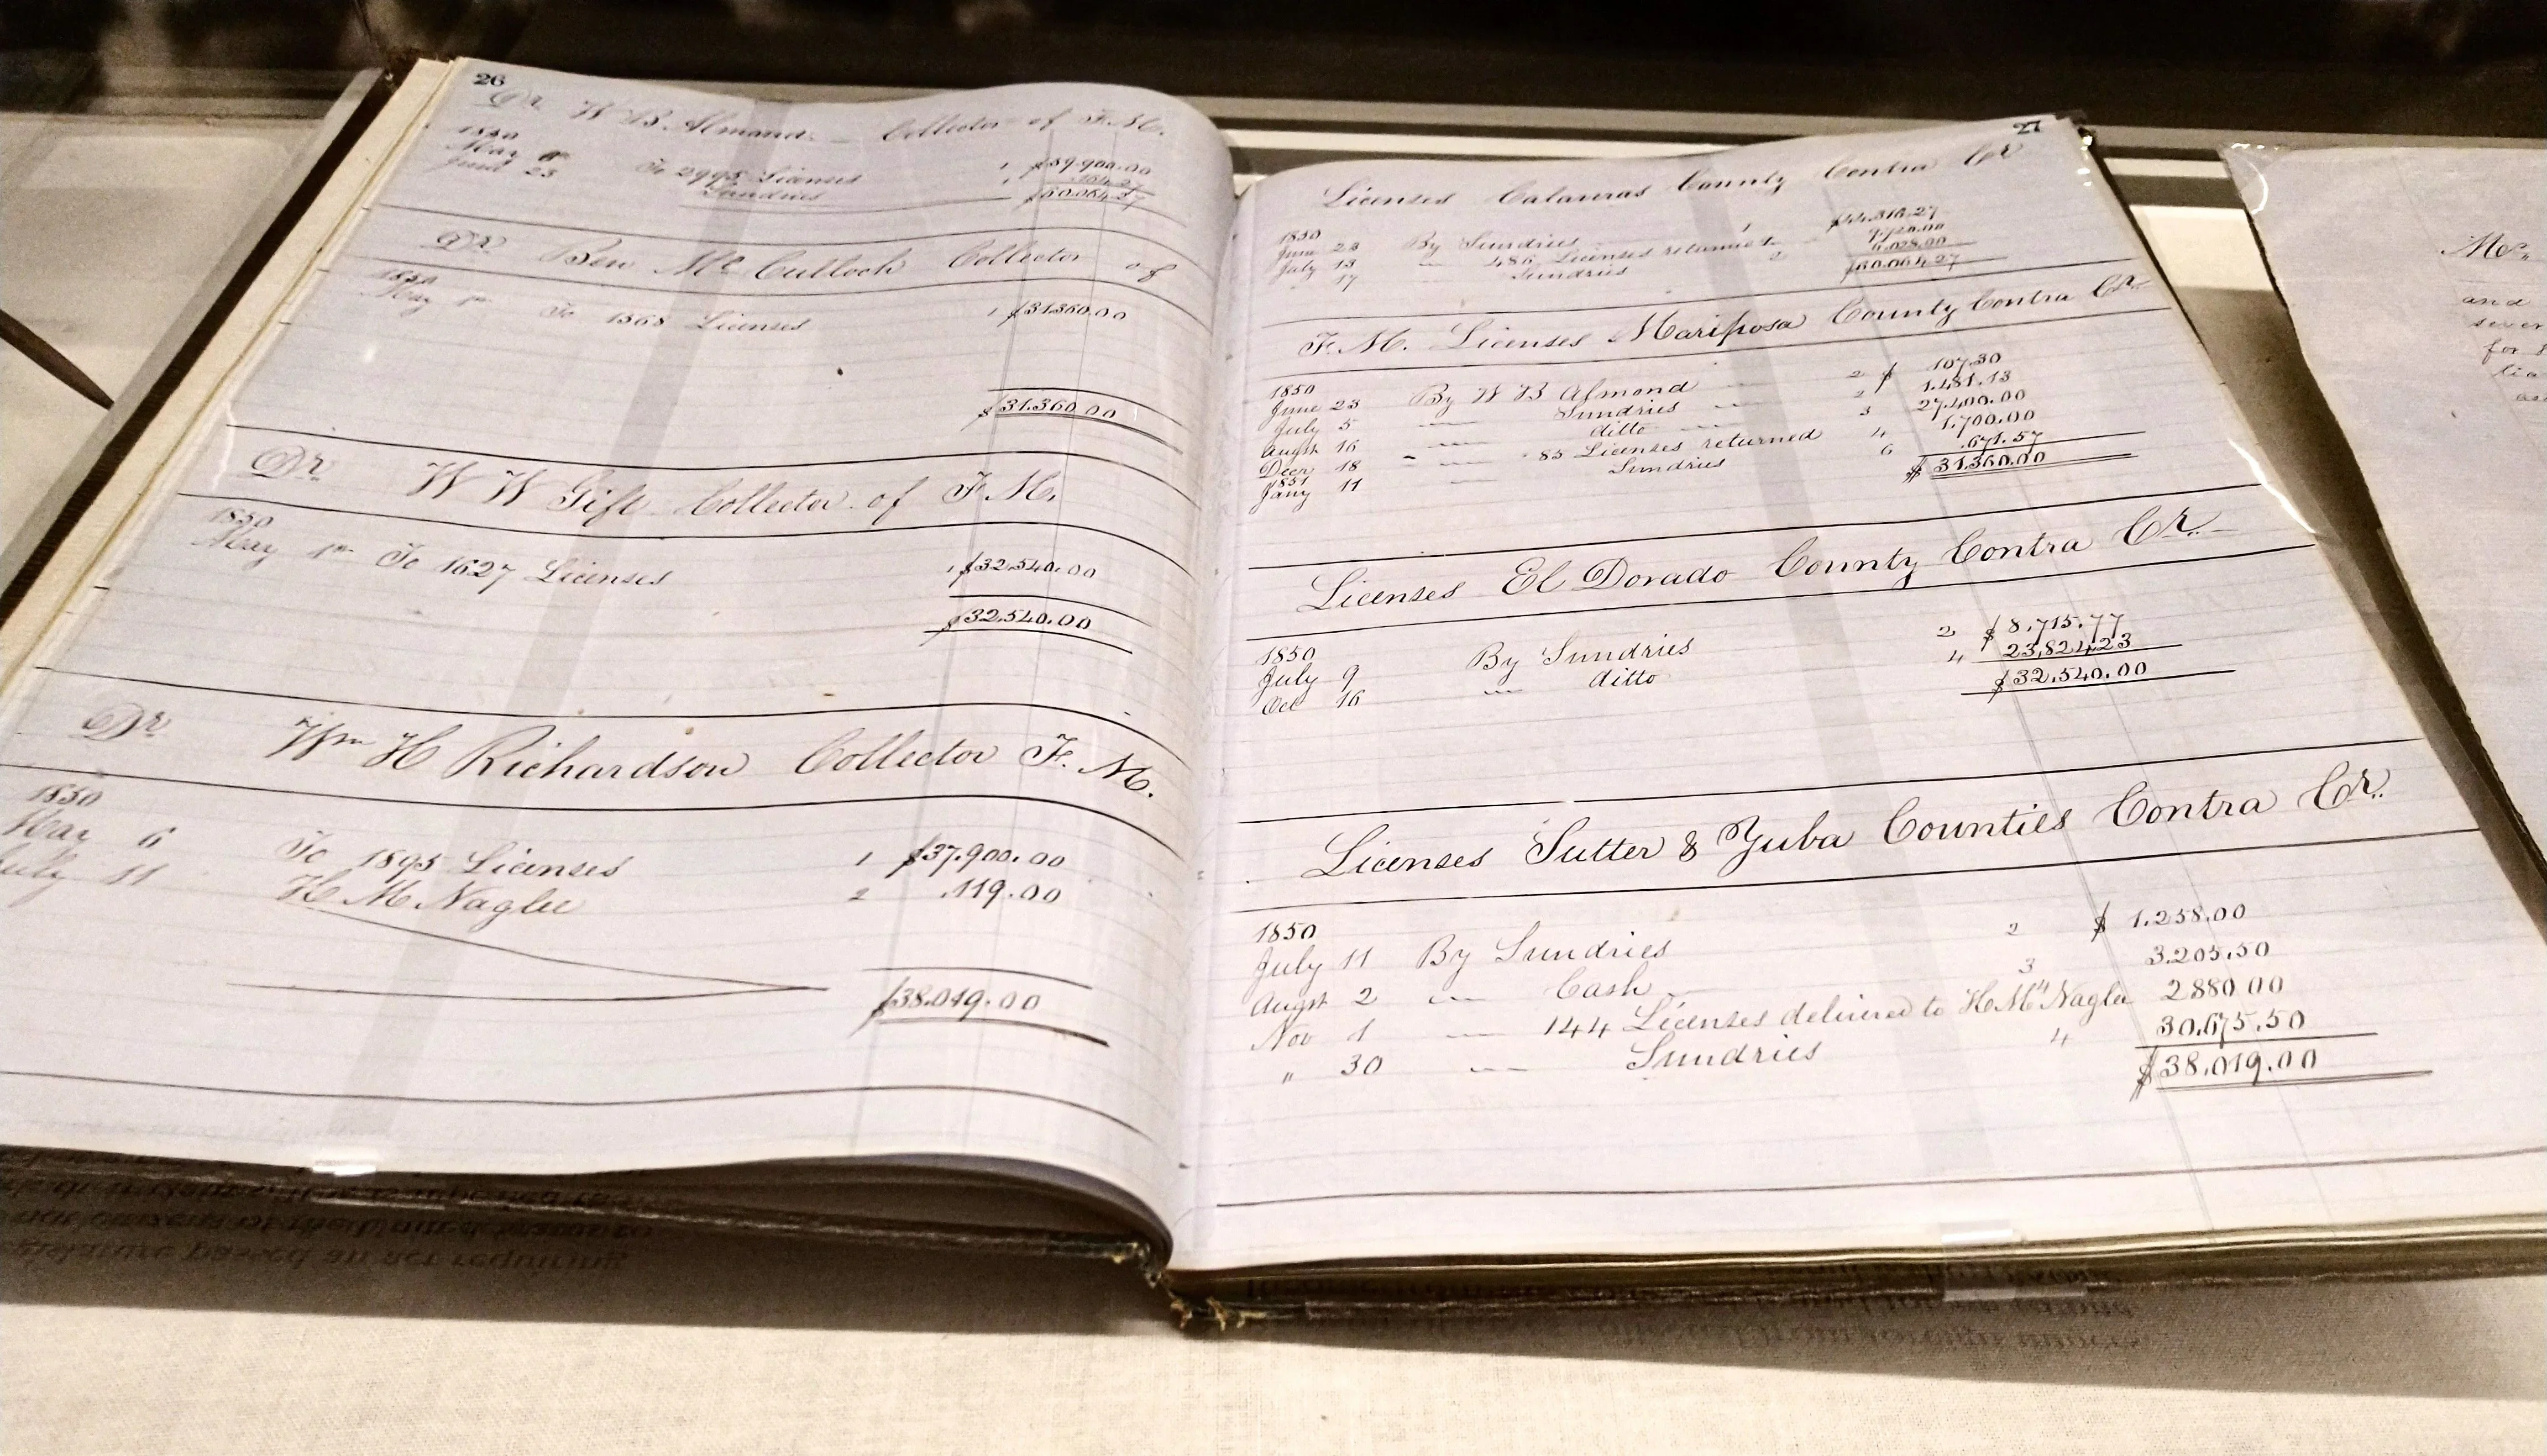 26
Dr W B Almond Collector of F.M.
1850
May 6
June 23
To 2995 Licenses 1 $59.900.00
Sundries 164.27
$60.064.27
Dr Ben McCulloch Collector of
1850
May 1st To 1568 Licenses 1 $31.360.00
$31.360.00
Dr W W Gift Collector of F.M.
1850
May 1st To 1627 Licenses 1 $32.540.00
$32.540.00
Dr Wm H Richardson Collector F.M.
1850
May 6 To 1895 Licenses 1 $37.900.00
July 11 H M Naglee 2 .119.00
$38.019.00
27
Licenses Calaveras County Contra Cr
1850
June 23 By Sundries 1 $44.316.27
July 13 " 486 Licenses returned 2 9.720.00
17 Sundries 2 6.028.00
$60.064.27
F.M. Licenses Mariposa County Contra Cr
1850
June 23 By W B Almond 2 $ 107.30
July 5 " Sundries 2 1.481.13
Augst 16 " ditto 3 27.400.00
Decr 18 " 85 Licenses returned 4 1.700.00
1851
Jany 11 " Sundries 6 .671.57
$31.360.00
Licenses El Dorado County Contra Cr
1850
July 9 By Sundries 2 $ 8.715.77
Oct 16 " ditto 4 23,824.23
$32.540.00
Licenses Sutter & Yuba Counties Contra Cr.
1850
July 11 By Sundries 2 $ 1.258.00
Augst 2 " Cash 3 3.205.50
Nov 1 " 144 Licenses delivered to H M Naglee 2880 00
" 30 " Sundries 4 30.675.50
$38.019.00
and
for